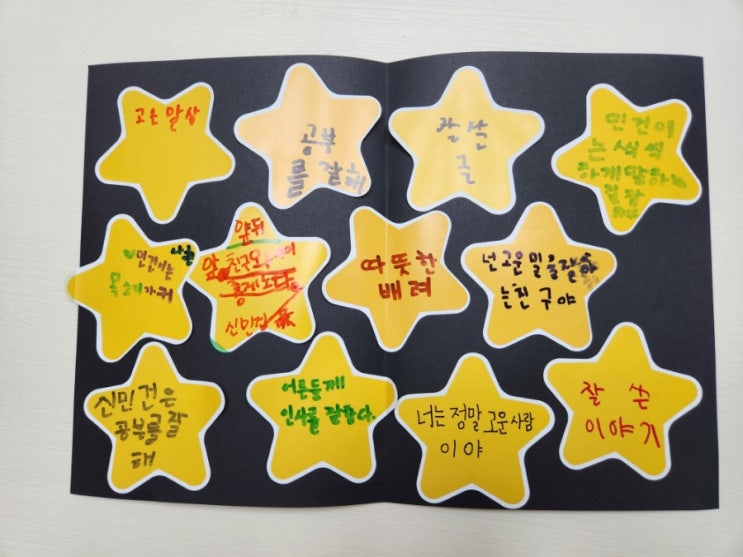 고운 말상
공부
를 잘해
잘 쓴
글
민건이
는 씩씩
하게 말하는
민건이는
목소리가 커
앞뒤
앞 친구와
즐겁게 논다.
신민건
따뜻한
배려
넌 고운 말을 잘하
는 친구야
신민건은
공부를 잘
해
어른들께
인사를 잘한다.
너는 정말 고운 사람
이야
잘 쓴
이야기